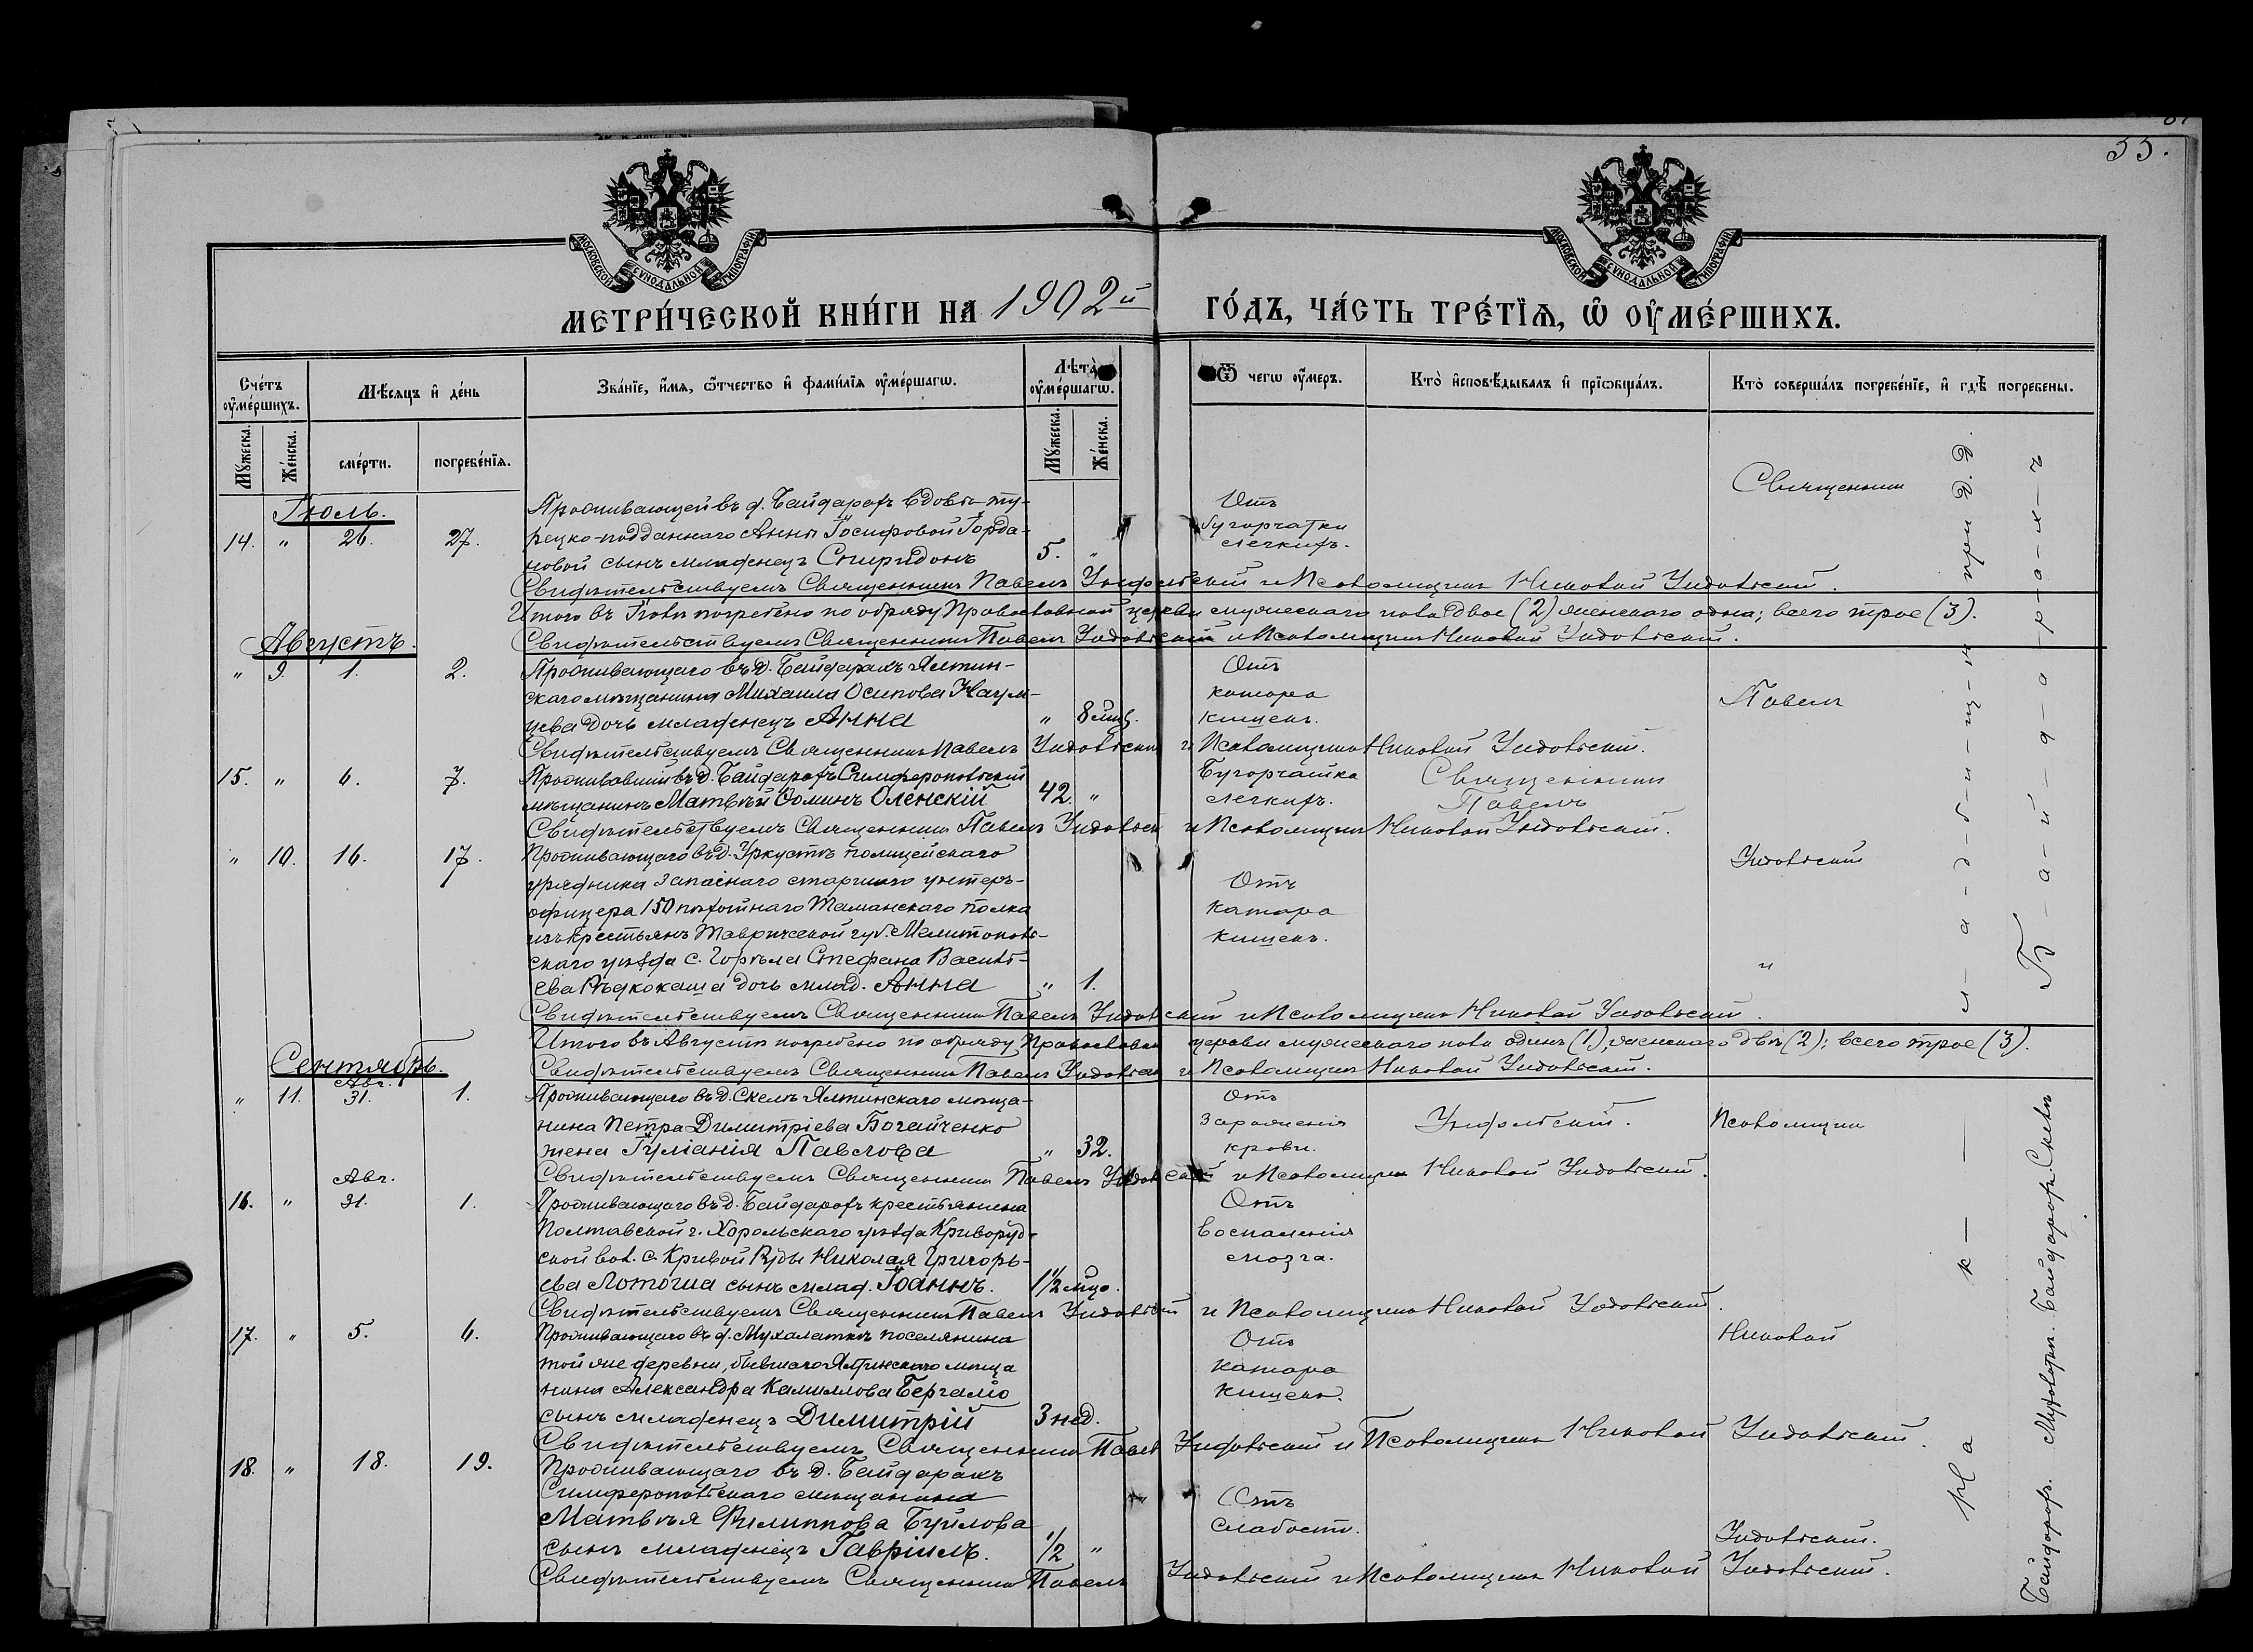 55.
МОСКОВСКОЙ СѴНОДАЛЬНОЙ ТИПОГРАФІИ
МОСКОВСКОЙ СѴНОДАЛЬНОЙ ТИПОГРАФІИ
МЕТРИ́ЧЕСКОЙ КНИ́ГИ НА 1902й ГО́ДЪ, ЧА́СТЬ ТРЕ́ТЇѦ, Ѡ ОУ҆МЕ́РШИХЪ.
Сче́тъ оу҆ме́ршихъ.
Мѣ́сяцъ и҆ де́нь
Зва́нїе, и҆́мѧ, ѻ҆́тчество и҆ фами́лїѧ оу҆ме́ршагѡ.
Лѣ́та оу҆ме́ршагѡ.
Ѿ чегѡ оу҆́меръ.
Кто̀ и҆сповѣ́дывалъ и҆ прїѡбща́лъ.
Кто̀ соверша́лъ погребе́нїе, и҆ гдѣ̀ погребены.
Мꙋ́жеска.
Же́нска.
сме́рти.
погребе́нїѧ.
Мꙋ́жеска.
Же́нска.
Іюль.
14. " 26. 27.
Проживающей въ д. Байдарахъ вдовы ту-
рецко-подданнаго Анны Іосифовой Іорда-
новой сынъ младенецъ Спиридонъ
5. "
Отъ
бугорчатки
легкихъ.
Священникъ
Свидѣтельствуемъ Священникъ Павелъ Ундольскій и Псаломщикъ Николай Ундольскій.
Итого въ Іюлѣ погребено по обряду Православной церкви мужескаго пола двое (2) женскаго одна; всего трое (3).
Свидѣтельствуемъ Священникъ Павелъ Ундольскій и Псаломщикъ Николай Ундольскій.
Августъ.
" 9. 1. 2.
Проживающаго въ д. Байдарахъ Ялтин-
скаго мѣщанина Михаила Осипова Наум-
цева дочь младенецъ Анна
" 8 мѣс.
Отъ
катара
кишекъ.
Павелъ
Свидѣтельствуемъ Священникъ Павелъ Ундольскій и Псаломщикъ Николай Ундольскій.
15. " 6. 7.
Проживавшій въ д. Байдарахъ Симферопольскій
мѣщанинъ Матвѣй Ѳоминъ Оленскій
42. "
Бугорчатка
легкихъ.
Священникъ
Павелъ
Свидѣтельствуемъ Священникъ Павелъ Ундольскій и Псаломщикъ Николай Ундольскій.
" 10. 16. 17.
Проживающаго въ д. Уркустѣ полицейскаго
урядника запаснаго старшаго унтеръ-
офицера 150 пѣхотнаго Таманскаго полка
изъ крестьянъ Таврической губ. Мелитополь-
скаго уѣзда с. Горѣла Стефана Василь-
ева Рѣдкокаша дочь млад. Анна
" 1.
Отъ
катара
кишекъ.
Ундольскій
и
Свидѣтельствуемъ Священникъ Павелъ Ундольскій и Псаломщикъ Николай Ундольскій.
Итого въ Августѣ погребено по обряду Православной церкви мужескаго пола одинъ (1), женскаго двѣ (2); всего трое (3).
Свидѣтельствуемъ Священникъ Павелъ Ундольскій и Псаломщикъ Николай Ундольскій.
Сентябрь.
" 11. Авг. 31. 1.
Проживающаго въ д. Скелѣ Ялтинскаго мѣща-
нина Петра Димитріева Богайченко
жена Іуліанія Павлова
" 32.
Отъ
Зараженія
крови.
Ундольскій.
Псаломщикъ
Свидѣтельствуемъ Священникъ Павелъ Ундольскій и Псаломщикъ Николай Ундольскій.
16. " Авг. 31. 1.
Проживающаго въ д. Байдарахъ крестьянина
Полтавской г. Хорольскаго уѣзда Криворуд-
ской вол. с. Кривой Руды Николая Григорь-
ева Лотоша сынъ млад. Іоаннъ.
1 1/2 мѣс.
Отъ
воспаленія
мозга.
Свидѣтельствуемъ Священникъ Павелъ Ундольскій и Псаломщикъ Николай Ундольскій.
17. " 5. 6.
Проживающаго въ д. Мухалаткѣ поселянина
той же деревни, бывшаго Ялтинскаго мѣща
нина Александра Камиллова Бергаліо
сынъ младенецъ Димитрій
3 нед.
Отъ
катара
кишекъ.
Николай
Свидѣтельствуемъ Священникъ Павелъ Ундольскій и Псаломщикъ Николай Ундольскій.
18. " 18. 19.
Проживающаго въ д. Байдарахъ
Симферопольскаго мѣщанина
Матвѣя Филиппова Буйлова
сынъ младенецъ Гавріилъ.
1/2 "
Отъ
слабости.
Ундольскій.
Свидѣтельствуемъ Священникъ Павелъ Ундольскій и Псаломщикъ Николай Ундольскій.
На к — л — а — д — б — и — щ — и при д. д.
Б — а — й — д — а — р — а — х — ъ